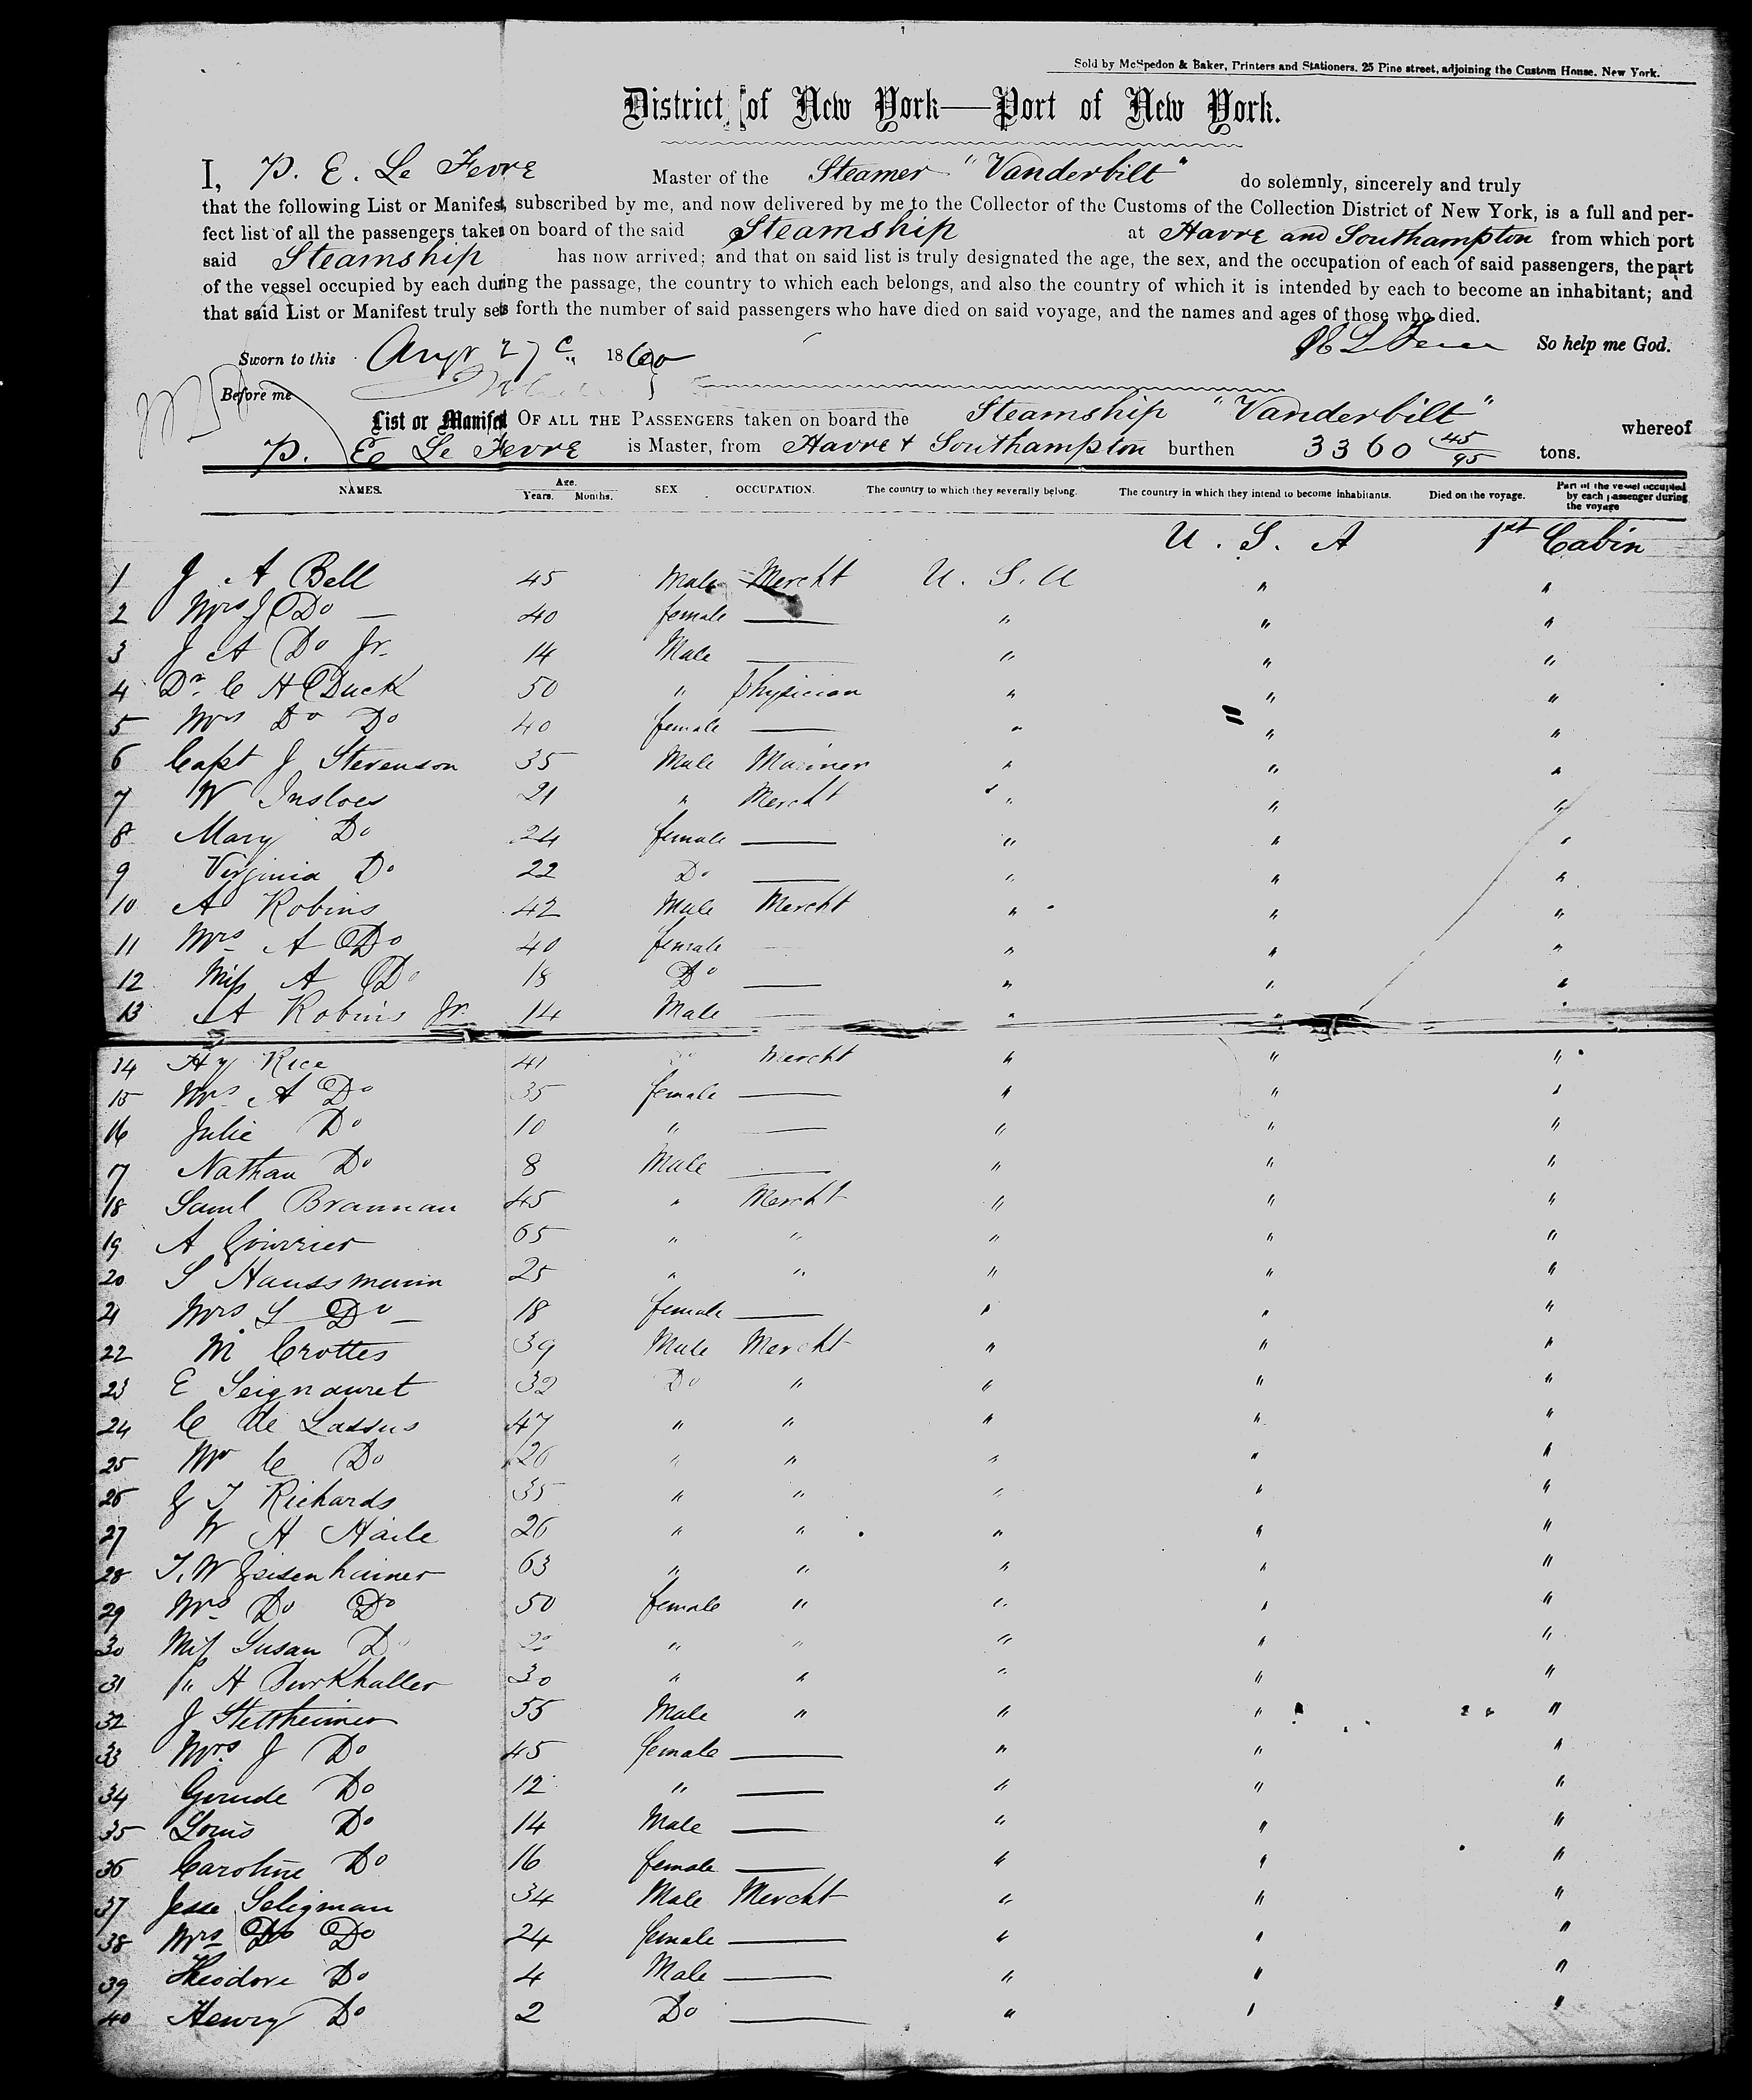 Sold by McSpedon & Baker, Printers and Stationers. 25 Pine street, adjoining the Custom House. New York.
District of New York—Port of New York.
I, P. E. Le Fevre Master of the Steamer "Vanderbilt" do solemnly, sincerely and truly
that the following List or Manifest, subscribed by me, and now delivered by me to the Collector of the Customs of the Collection District of New York, is a full and per-
fect list of all the passengers taken on board of the said Steamship at Havre and Southampton from which port
said Steamship has now arrived; and that on said list is truly designated the age, the sex, and the occupation of each of said passengers, the part
of the vessel occupied by each during the passage, the country to which each belongs, and also the country of which it is intended by each to become an inhabitant; and
that said List or Manifest truly sets forth the number of said passengers who have died on said voyage, and the names and ages of those who died.
Sworn to this 27 1860 So help me God.
Before me
List or Manifest OF ALL THE PASSENGERS taken on board the Steamship "Vanderbilt" whereof
P. E Le Fevre is Master, from Havre + Southampton burthen 3360 45/95 tons.
NAMES. Age. Years. Months. SEX OCCUPATION. The country to which they severally belong. The country in which they intend to become inhabitants. Died on the voyage. Part of the vessel occupied by each passenger during the voyage
U. S. A 1st Cabin
1 J A Bell 45 Male Mercht U. S. A " "
2 Mrs J Do — 40 female — " " "
3 J A Do Jr. 14 Male — " " "
4 Dr. C H Duck 50 " Physician " " "
5 Mrs Do Do 40 female — " " "
6 Capt J Stevenson 35 Male Mariner " " "
7 W Insloes 21 " Mercht " " "
8 Mary Do 24 female — " " "
9 Virginia Do 22 Do — " " "
10 A Robins 42 Male Mercht " " "
11 Mrs A Do 40 female — " " "
12 Miss A Do 18 Do — " " "
13 A Robins Jr. 14 Male — " " "
14 Hy Rice 41 Do Mercht " " "
15 Mrs A Do 35 female — " " "
16 Julie Do 10 " — " " "
17 Nathan Do 8 Male — " " "
18 Saml Brannan 45 " Mercht " " "
19 A 65 " " " " "
20 S Haussmann 25 " " " " "
21 Mrs S Do — 18 female — " " "
22 M Crottes 39 Male Mercht " " "
23 E Seignouret 32 Do " " " "
24 C de Lassus 47 " " " " "
25 Mr C Do 26 " " " " "
26 J T Richards 35 " " " " "
27 W H Haile 26 " " " " "
28 T. W Geisenhainer 63 " " " " "
29 Mrs Do Do 50 female " " " "
30 Miss Susan Do " " " " "
31 " H Burkhalter 30 " " " " "
32 J Stettheimer 55 Male " " " "
33 Mrs J Do 45 female — " " "
34 Do 12 " — " " "
35 Louis Do 14 Male — " " "
36 Caroline Do 16 female — " " "
37 Jesse Seligman 34 Male Mercht " " "
38 Mrs Do Do 24 female — " " "
39 Theodore Do 4 Male — " " "
40 Henry Do 2 Do — " " "